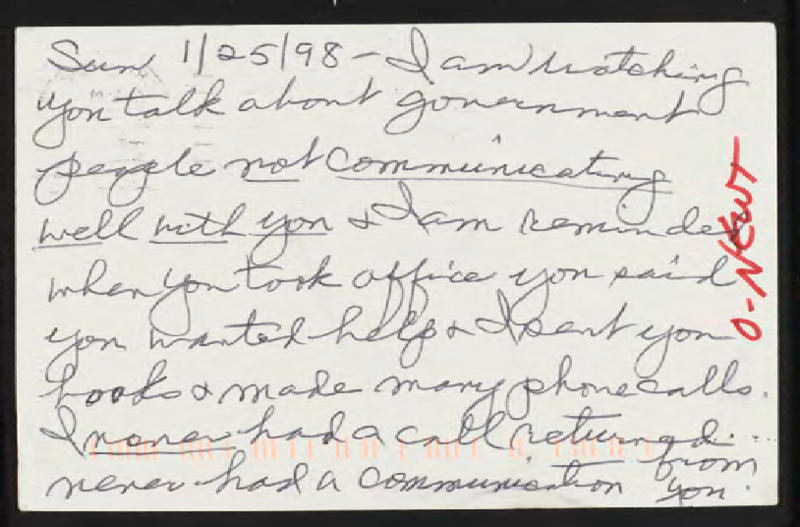 Sun 1/25/98 - I am watching
you talk about government
people not communicating
well with you & I am reminded
when you took office you said
you wanted help & I sent you
books & made many phone calls.
I never had a call returned.
never had a communication from
you.
O-NEWT